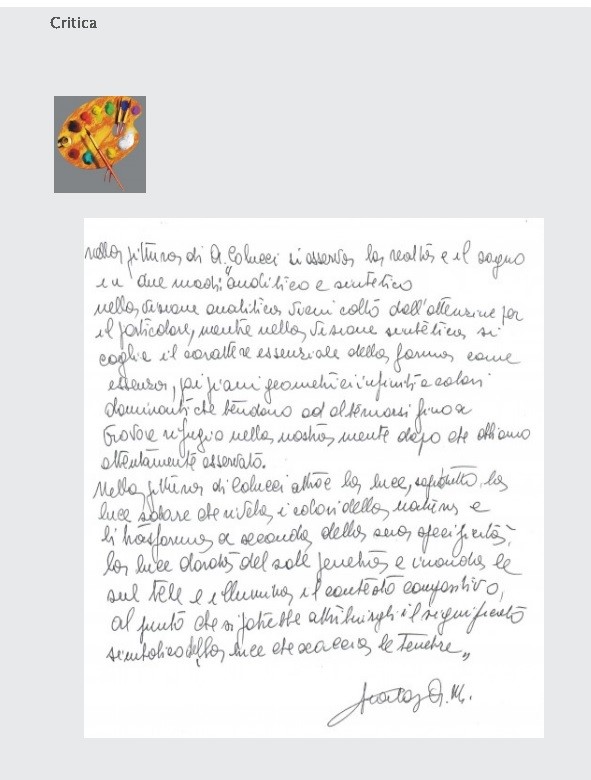 Critica
nella pittura di A. Colucci si osserva la realtà e il sogno
in due modi "analitico e sintetico
nella visione analitica vieni colto dall'attenzione per
il particolare, mentre nella visione sintetica si
coglie il carattere essenziale della forma come
essenza, poi piani geometrici infiniti e colori
dominanti che tendono ad alternarsi fino a
trovare rifugio nella nostra mente dopo che abbiamo
attentamente osservato.
Nella pittura di Colucci attrae la luce, soprattutto, la
luce solare che rivela i colori della natura e
li trasforma a seconda della sua specificità,
la luce dorata del sole penetra e inonda le
sue tele e illumina il contesto compositivo,
al punto che si potrebbe attribuirgli il significato
simbolico della luce che scaccia le tenebre"
A. M.